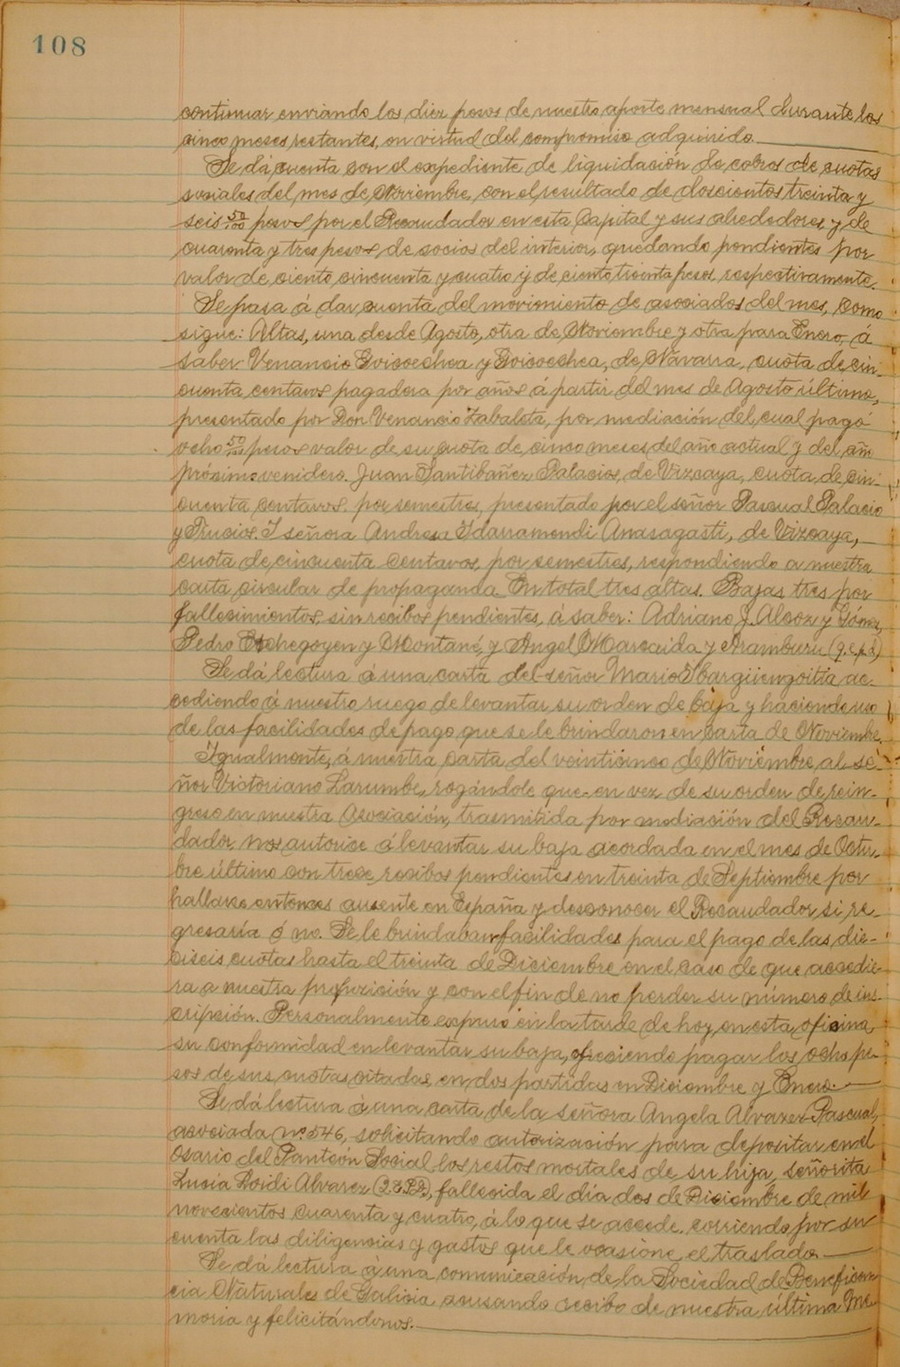 108
continuar enviando los diez pesos de nuestro aporte mensual durante los
cinco meses restantes, en virtud del compromiso adquirido.
Se dá cuenta con el expediente de liquidación de cobros de cuotas
sociales del mes de Noviembre, con el resultado de doscientos treinta y
seis 50/100 pesos por el Recaudador en esta Capital y sus alrededores y de
cuarenta y tres pesos de socios del interior, quedando pendientes por
valor de ciento cincuenta y cuatro y de ciento treinta pesos respectivamente.
Se pasa á dar cuenta del movimiento de asociados del mes, como
sigue: Altas, una desde Agosto, otra de Noviembre y otra para Enero, á
saber Venancio Goicoechea y Goicoechea, de Navarra, cuota de cin-
cuenta centavos pagadera por años á partir del mes de Agosto último,
presentado por Don Venancio Zabaleta, por mediación del cual pagó
ocho 50/100 pesos valor de su cuota de cinco meses del año actual y del año
próximo venidero. Juan Santibañez Palacios, de Vizcaya, cuota de cin-
cuenta centavos, por semestres, presentado por el señor Pascual Palacio
y Trucios. Y señora Andresa Idarramendi Anasagasti, de Vizcaya,
cuota de cincuenta centavos, por semestres, respondiendo a nuestra
carta circular de propaganda. En total tres altas. Bajas tres por
fallecimientos, sin recibos pendientes, á saber: Adriano J. Alcoz y Gómez,
Pedro Etchegoyen y Montané y Angel Marcaida y Aramburu (q.e.p.d)
Se dá lectura á una carta del señor Mario Ibargüengoitia ac-
cediendo á nuestro ruego de levantar su orden de baja y haciendo uso
de las facilidades de pago que se le brindaron en carta de Noviembre.
Igualmente, á nuestra carta del veinticinco de Noviembre al se-
ñor Victoriano Larumbe, rogándole que en vez de su orden de rein-
greso en nuestra Asociación, trasmitida por mediación del Recau-
dador, nos autorice á levantar su baja acordada en el mes de Octu-
bre último con trece recibos pendientes en treinta de Septiembre por
hallarse entonces ausente en España y desconocer el Recaudador si re-
gresaría ó no. Se le brindaban facilidades para el pago de las die-
ciseis cuotas hasta el treinta de Diciembre en el caso de que accedie-
ra a nuestra proposición y con el fin de no perder su número de ins-
cripción. Personalmente expuso en la tarde de hoy, en esta oficina,
su conformidad en levantar su baja, ofreciendo pagar los ocho pe-
sos de sus cuotas citadas, en dos partidas en Diciembre y Enero.
Se dá lectura á una carta de la señora Angela Alvarez Pascual,
asociada nº 546, solicitando autorización para depositar en el
Osario del Panteón Social los restos mortales de su hija, señorita
Lucia Loidi Alvarez, fallecida el día dos de Diciembre de mil
novecientos cuarenta y cuatro, á lo que se accede, corriendo por su
cuenta las diligencias y gastos que le ocasione el traslado.
Se dá lectura a una comunicación de la Sociedad de Beneficen-
cia Naturales de Galicia acusando recibo de nuestra última Me-
moria y felicitándonos.